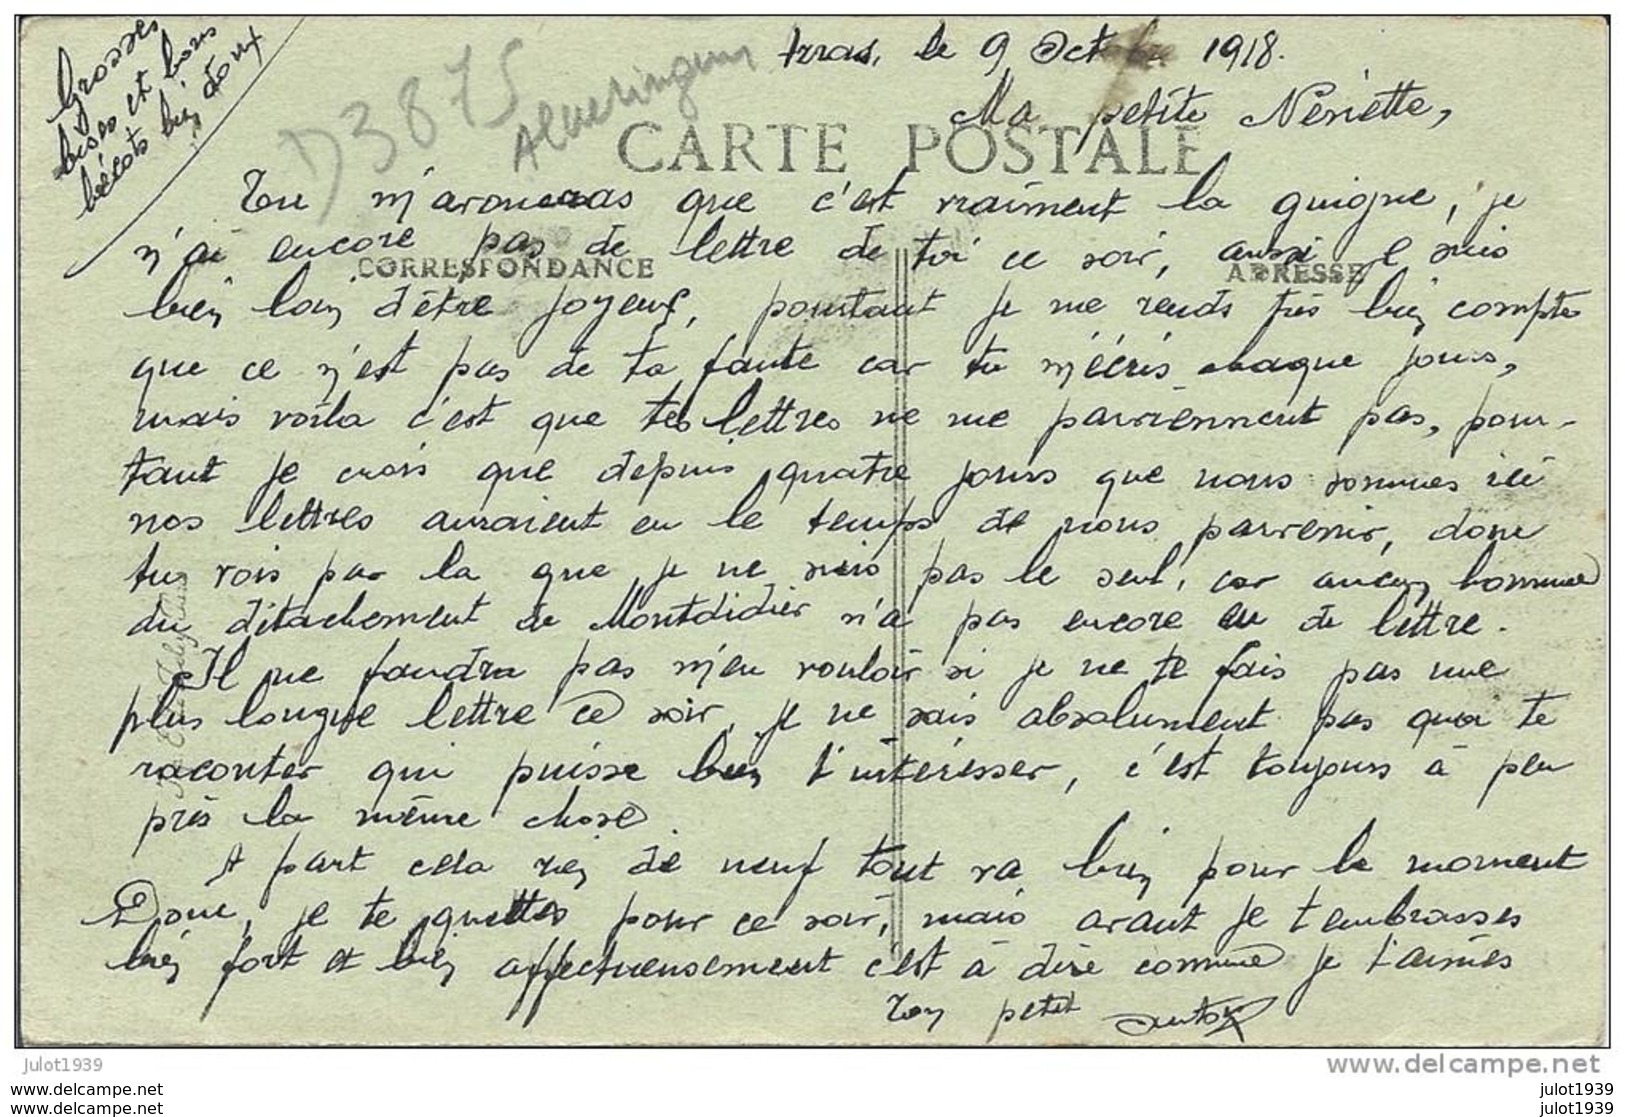 Grosses
bises et bons
bécots bien doux
D3875
Alveringem
Arras, le 9 Octobre 1918.
Ma petite Neniette,
CARTE POSTALE
Tu m'avoueras que c'est vraiment la guigne, je
n'ai encore pas de lettre de toi ce soir, aussi je suis
CORRESPONDANCE
ADRESSE
bien loin d'être joyeux, pourtant je me rends très bien compte
que ce n'est pas de ta faute car tu m'écris chaque jours,
mais voila c'est que tes lettres ne me parviennent pas, pour-
tant je crois que depuis quatre jours que nous sommes ici
nos lettres auraient eu le temps de nous parvenir, donc
tu vois par la que je ne suis pas le seul, car aucun homme
du détachement de Montdidier n'a pas encore eu de lettre.
Il ne faudra pas m'en vouloir si je ne te fais pas une
plus longue lettre ce soir, je ne sais absolument pas quoi te
raconter qui puisse bien t'intéresser, c'est toujours à peu
près la même chose.
A part cela rien de neuf tout va bien pour le moment
Donc, je te quittes pour ce soir, mais avant je t'embrasses
bien fort et bien affectueusement c'est à dire comme je t'aimes
Ton petit
julot1939
www.delcampe.net
julot1939.skynetblogs.be
julot1939.skynetblogs.be
julot1939
julot1939